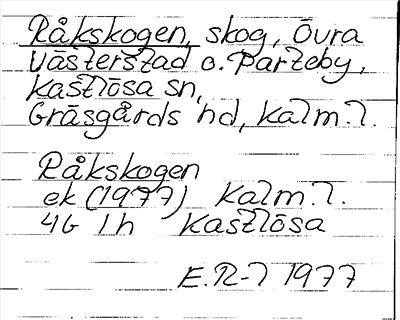 Råkskogen, skog, Övra
Västerstad o. Parteby,
Kastlösa sn,
Gräsgårds hd, Kalm.l.
Råkskogen
ek (1977) Kalm.l.
4G 1h Kastlösa
E.R-l 1977